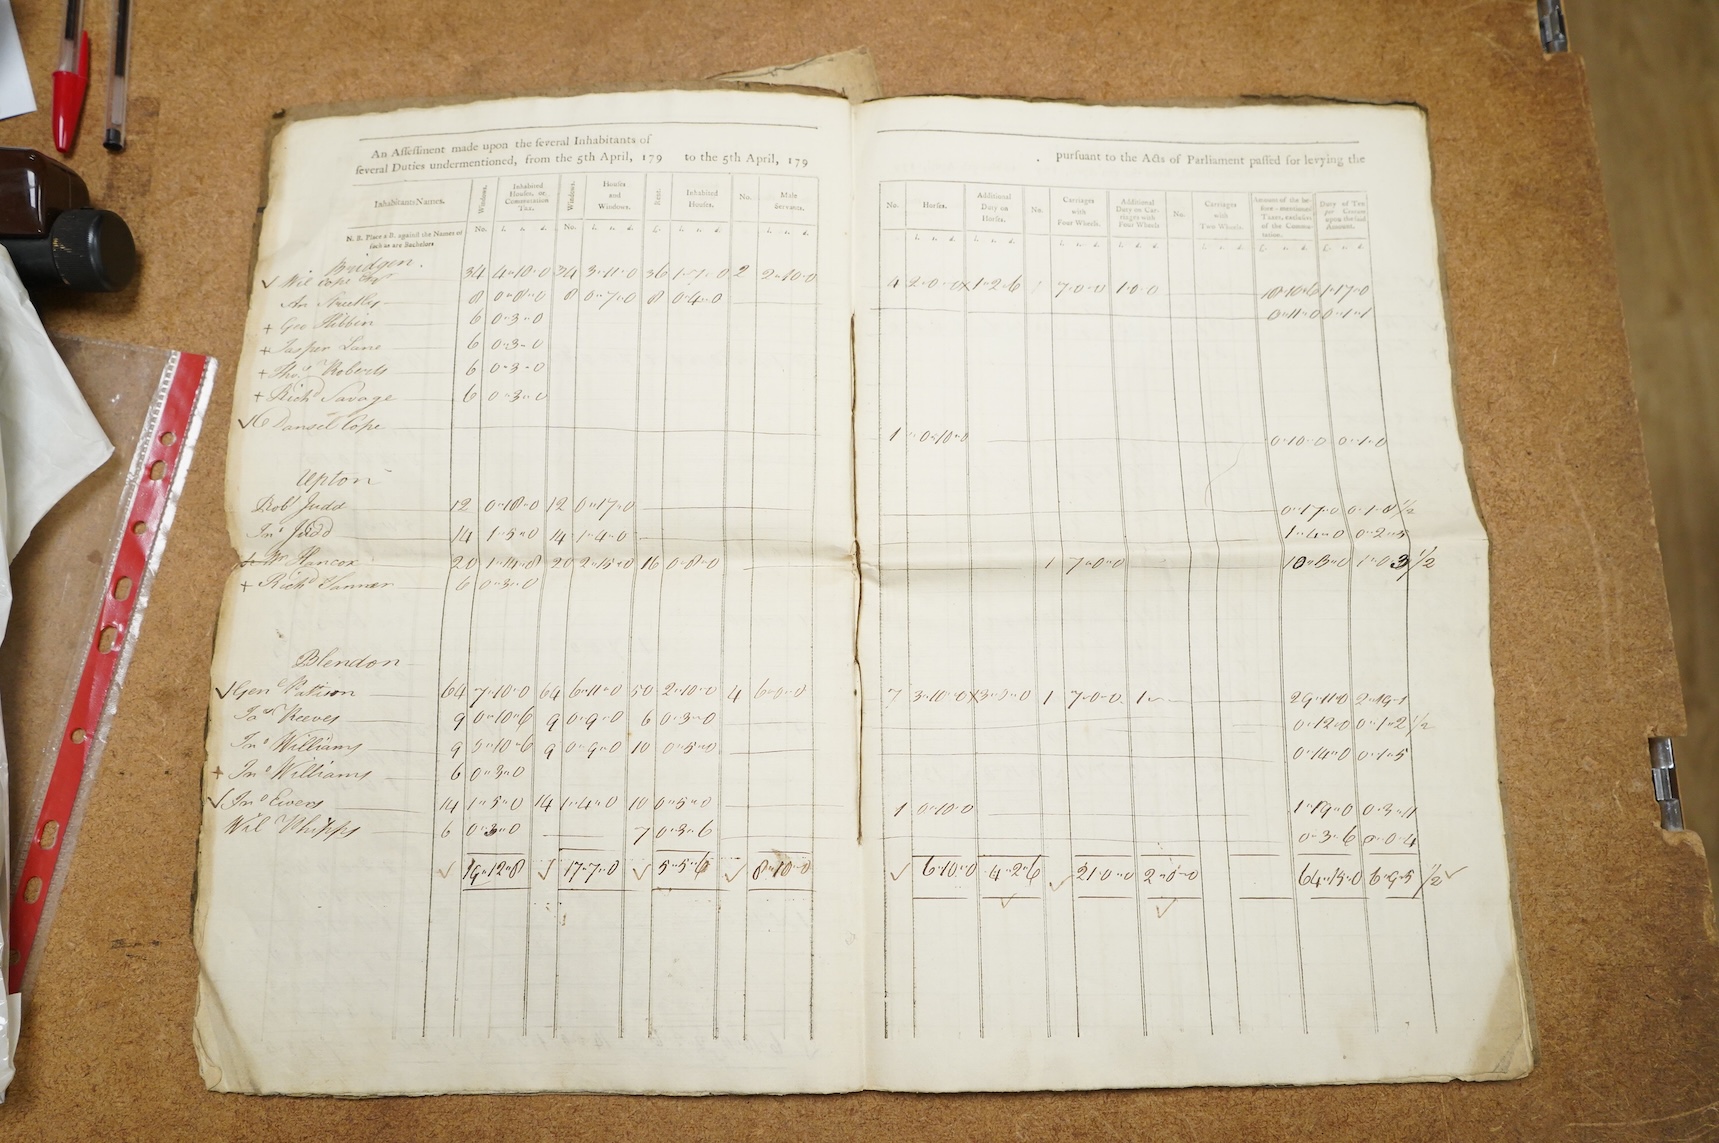 An Assessment made upon the several Inhabitants of
several Duties undermentioned, from the 5th April, 179 to the 5th April, 179 pursuant to the Acts of Parliament passed for levying the
Inhabitants Names. Windows. Inhabited Houses, or Commutation Tax. Windows. Houses and Windows. Rent. Inhabited Houses. No. Male Servants. No. Horses. Additional Duty on Horses. No. Carriages with Four Wheels. Additional Duty on Carriages with Four Wheels No. Carriages with Two Wheels. Amount of the before-mentioned Taxes, exclusive of the Commutation. Duty of Ten per Centum upon the said Amount.
N. B. Place a B. against the Names of such as are Bachelors
Bridgen.
✓ Wil Cope Esqr 34 4"10"0 34 3"11"0 36 1"7"0 2 2"10"0 4 2"0"0 x 1"2"6 1 7"0"0 1"0"0 18"10"6 1"17"0
8 0"8"0 8 0"7"0 8 0"4"0 0"11"0 0"1"1
+ Geo Hibbin 6 0"3"0
+ Jasper Lane 6 0"3"0
+ Thos Roberts 6 0"3"0
+ Richd Savage 6 0"3"0
✓ Dansel Cope 1 0"10"0 0"10"0 0"1"0
Upton
Robt Judd 12 0"18"0 12 0"17"0 0"17"0 0"1"8 1/2
Jno Judd 14 1"5"0 14 1"4"0 1"4"0 0"2"5
Hancox 20 1"14"8 20 2"15"0 16 0"8"0 1 7"0"0 10"3"0 1"0"3 1/2
+ Richd Tanner 6 0"3"0
Blendon
✓ Genl Pattison 64 7"10"0 64 6"11"0 50 2"10"0 4 6"0"0 7 3"10"0 x 3"0"0 1 7"0"0 1" 29"11"0 2"19"1
Jas Reeves 9 0"10"6 9 0"9"0 6 0"3"0 0"12"0 0"1"2 1/2
Jno Williams 9 0"10"6 9 0"9"0 10 0"5"0 0"14"0 0"1"5
+ Jno Williams 6 0"3"0
✓ Jno Ewers 14 1"5"0 14 1"4"0 10 0"5"0 1 0"10"0 1"19"0 0"3"11
Wil Whipps 6 0"3"0 7 0"3"6 0"3"6 0"0"4
✓ 19"12"8 ✓ 17"7"0 ✓ 5"5"6 ✓ 8"10"0 ✓ 6"10"0 4"2"6 ✓ 21"0"0 2"0"0 64"15"0 6"9"5 1/2 ✓